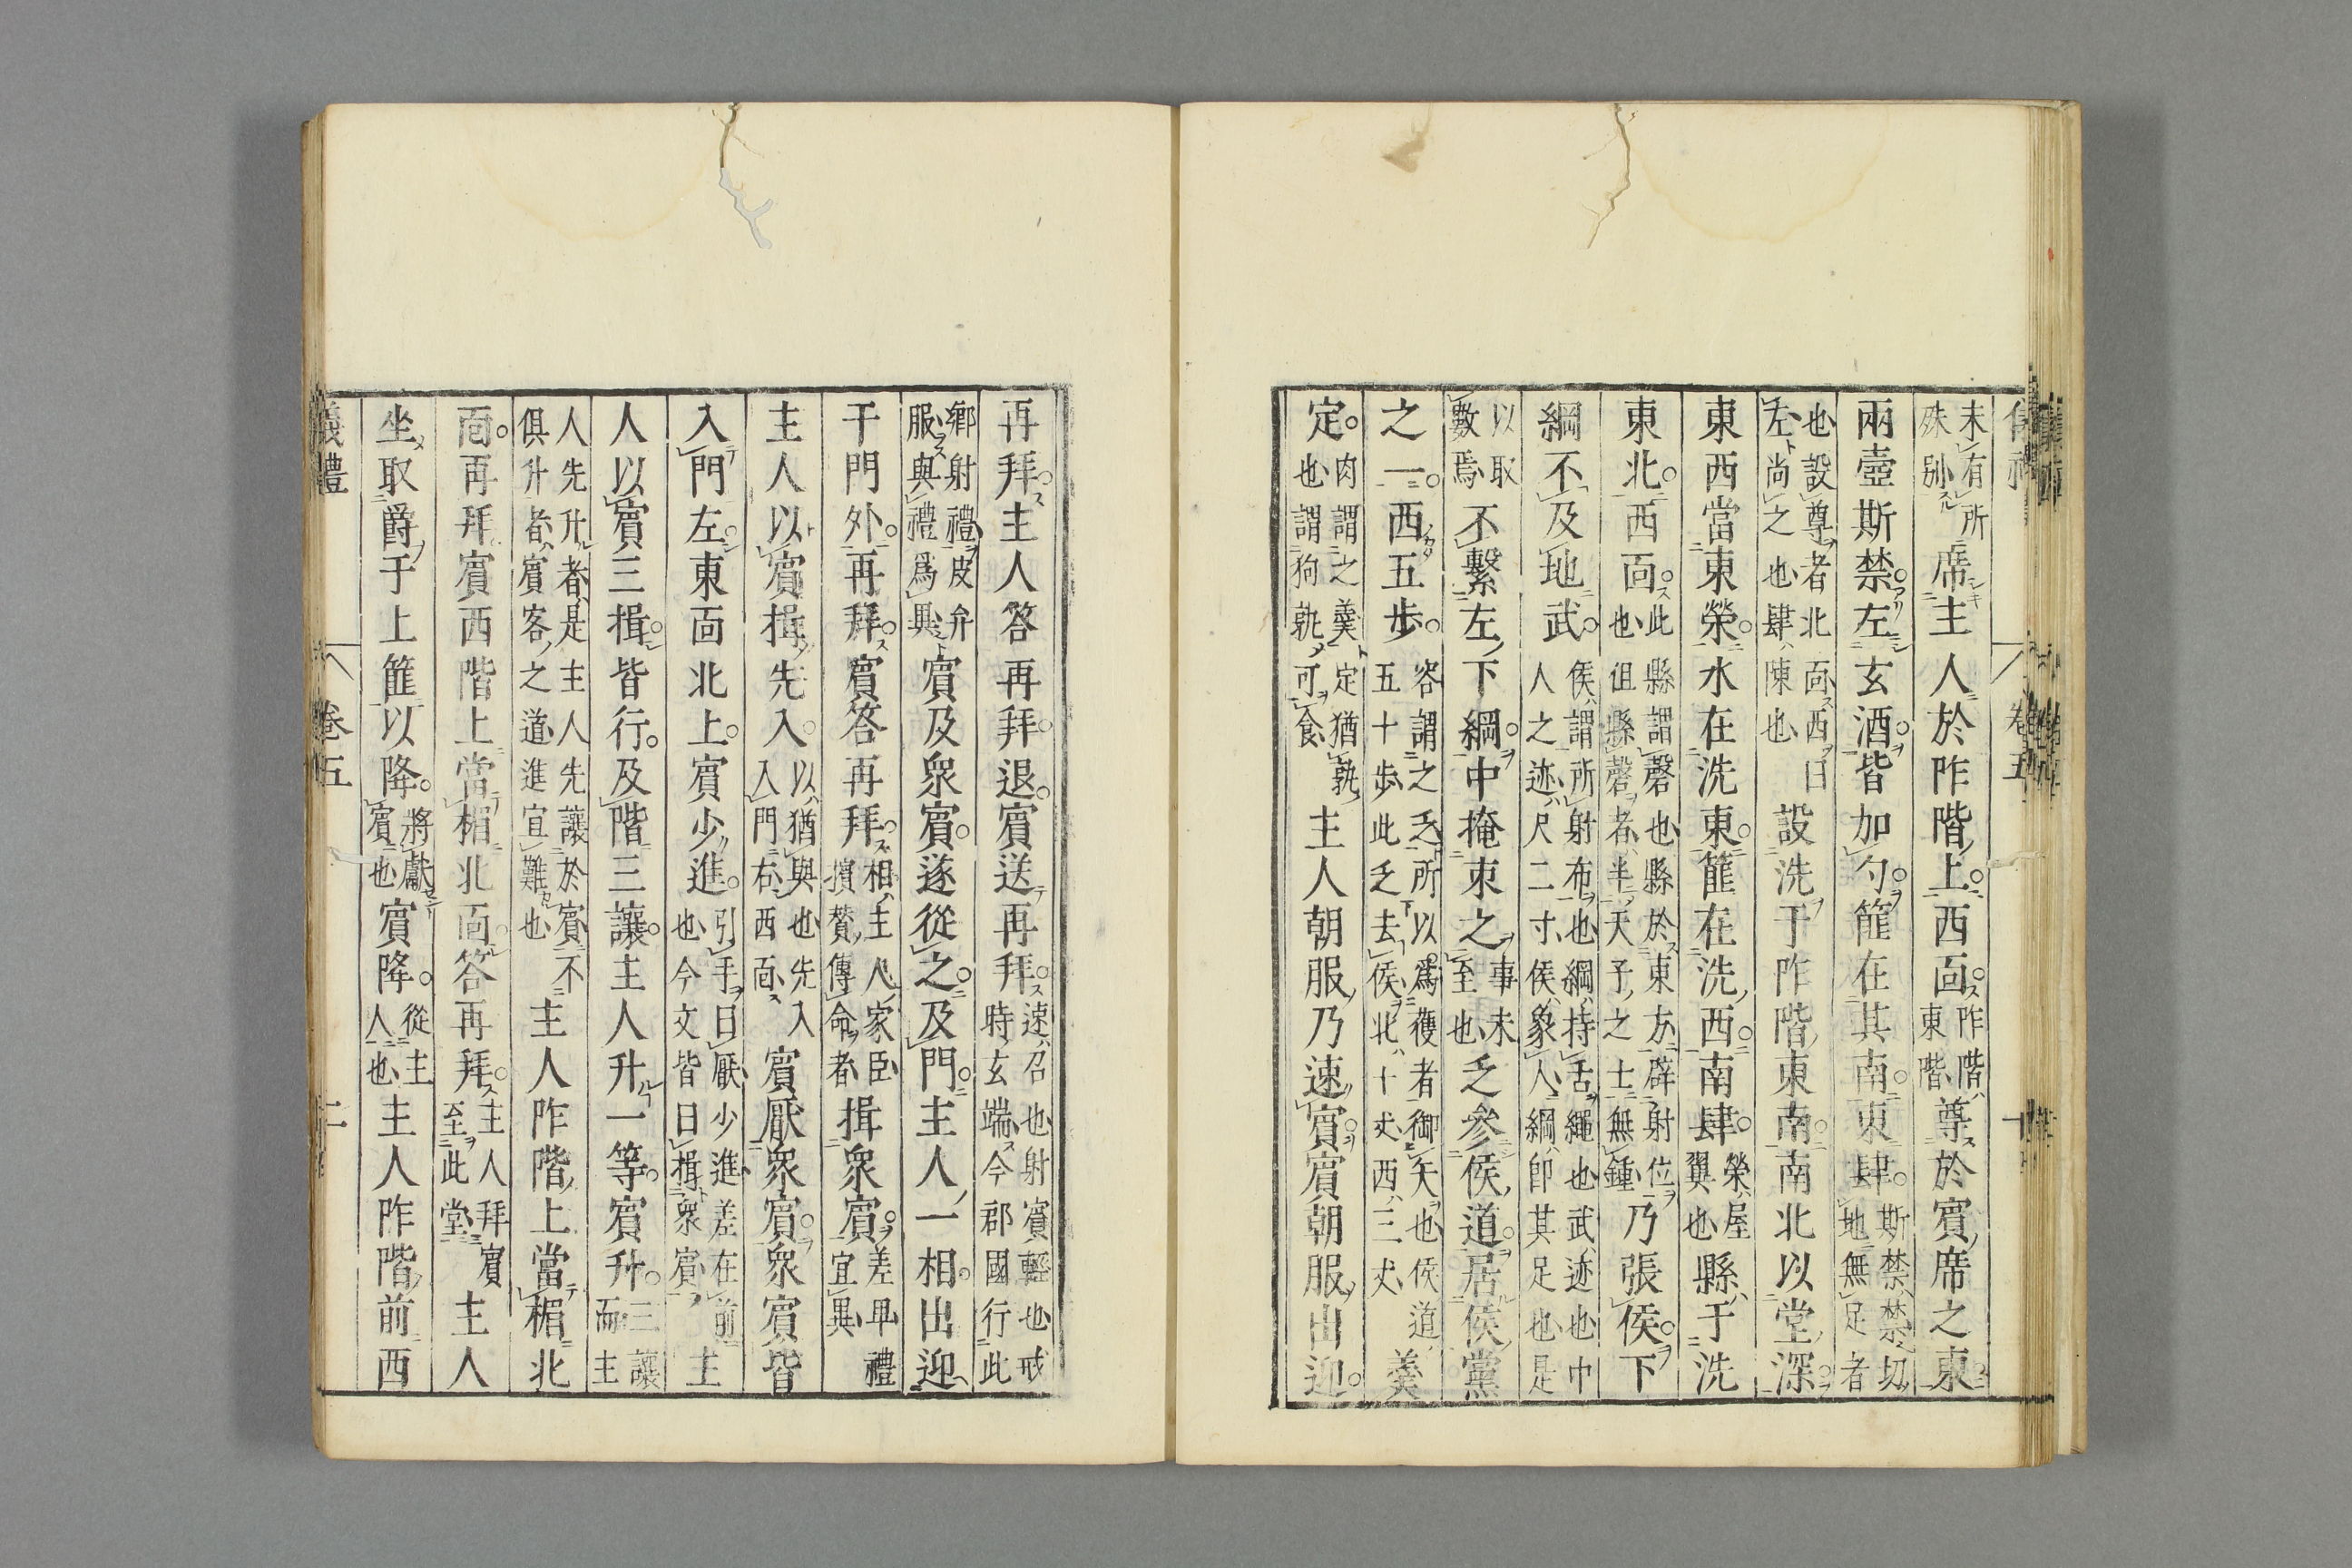 未有所殊别席主人於阼階上西面阼階東階尊於賓席之東
兩壺斯禁左玄酒皆加勺篚在其南東肆斯禁禁切地無足者
也設尊者北面西曰左尚之也肆陳也設洗于阼階東南南北以堂深
東西當東榮水在洗東篚在洗西南肆榮屋翼也縣于洗
東北西面此縣謂磬也縣於東方辟射位也但縣磬者半天子之士無鍾乃張侯下
綱不及地武侯謂所射布也綱持舌繩也武迹也中人之迹尺二寸侯象人綱即其足也是
以取數焉不繫左下綱中掩束之事未至也乏參侯道居侯黨
之一西五步容謂之乏所以爲獲者御矢也侯道五十步此乏去侯北十丈西三丈羹
定肉謂之羹定猶孰也謂狗孰可食主人朝服乃速賓賓朝服出迎
再拜主人答再拜退賓送再拜速召也射賓輕也戒時玄端今郡國行此
鄉射禮皮弁服與禮爲異賓及眾賓遂從之及門主人一相出迎
于門外再拜賓答再拜相主人家臣擯贊傳命者揖眾賓差卑禮宜異
主人以賓揖先入以猶與也先入入門右西面賓厭眾賓眾賓皆
入門左東面北上賓少進引手曰厭少進差在前也今文皆曰揖眾賓主
人以賓三揖皆行及階三讓主人升一等賓升三讓而主
人先升者是主人先讓於賓不俱升者賓客之道進宜難也主人阼階上當楣北
面再拜賓西階上當楣北面答再拜主人拜賓至此堂主人
坐取爵于上篚以降將獻賓也賓降從主人也主人阼階前西
儀禮 卷五 二